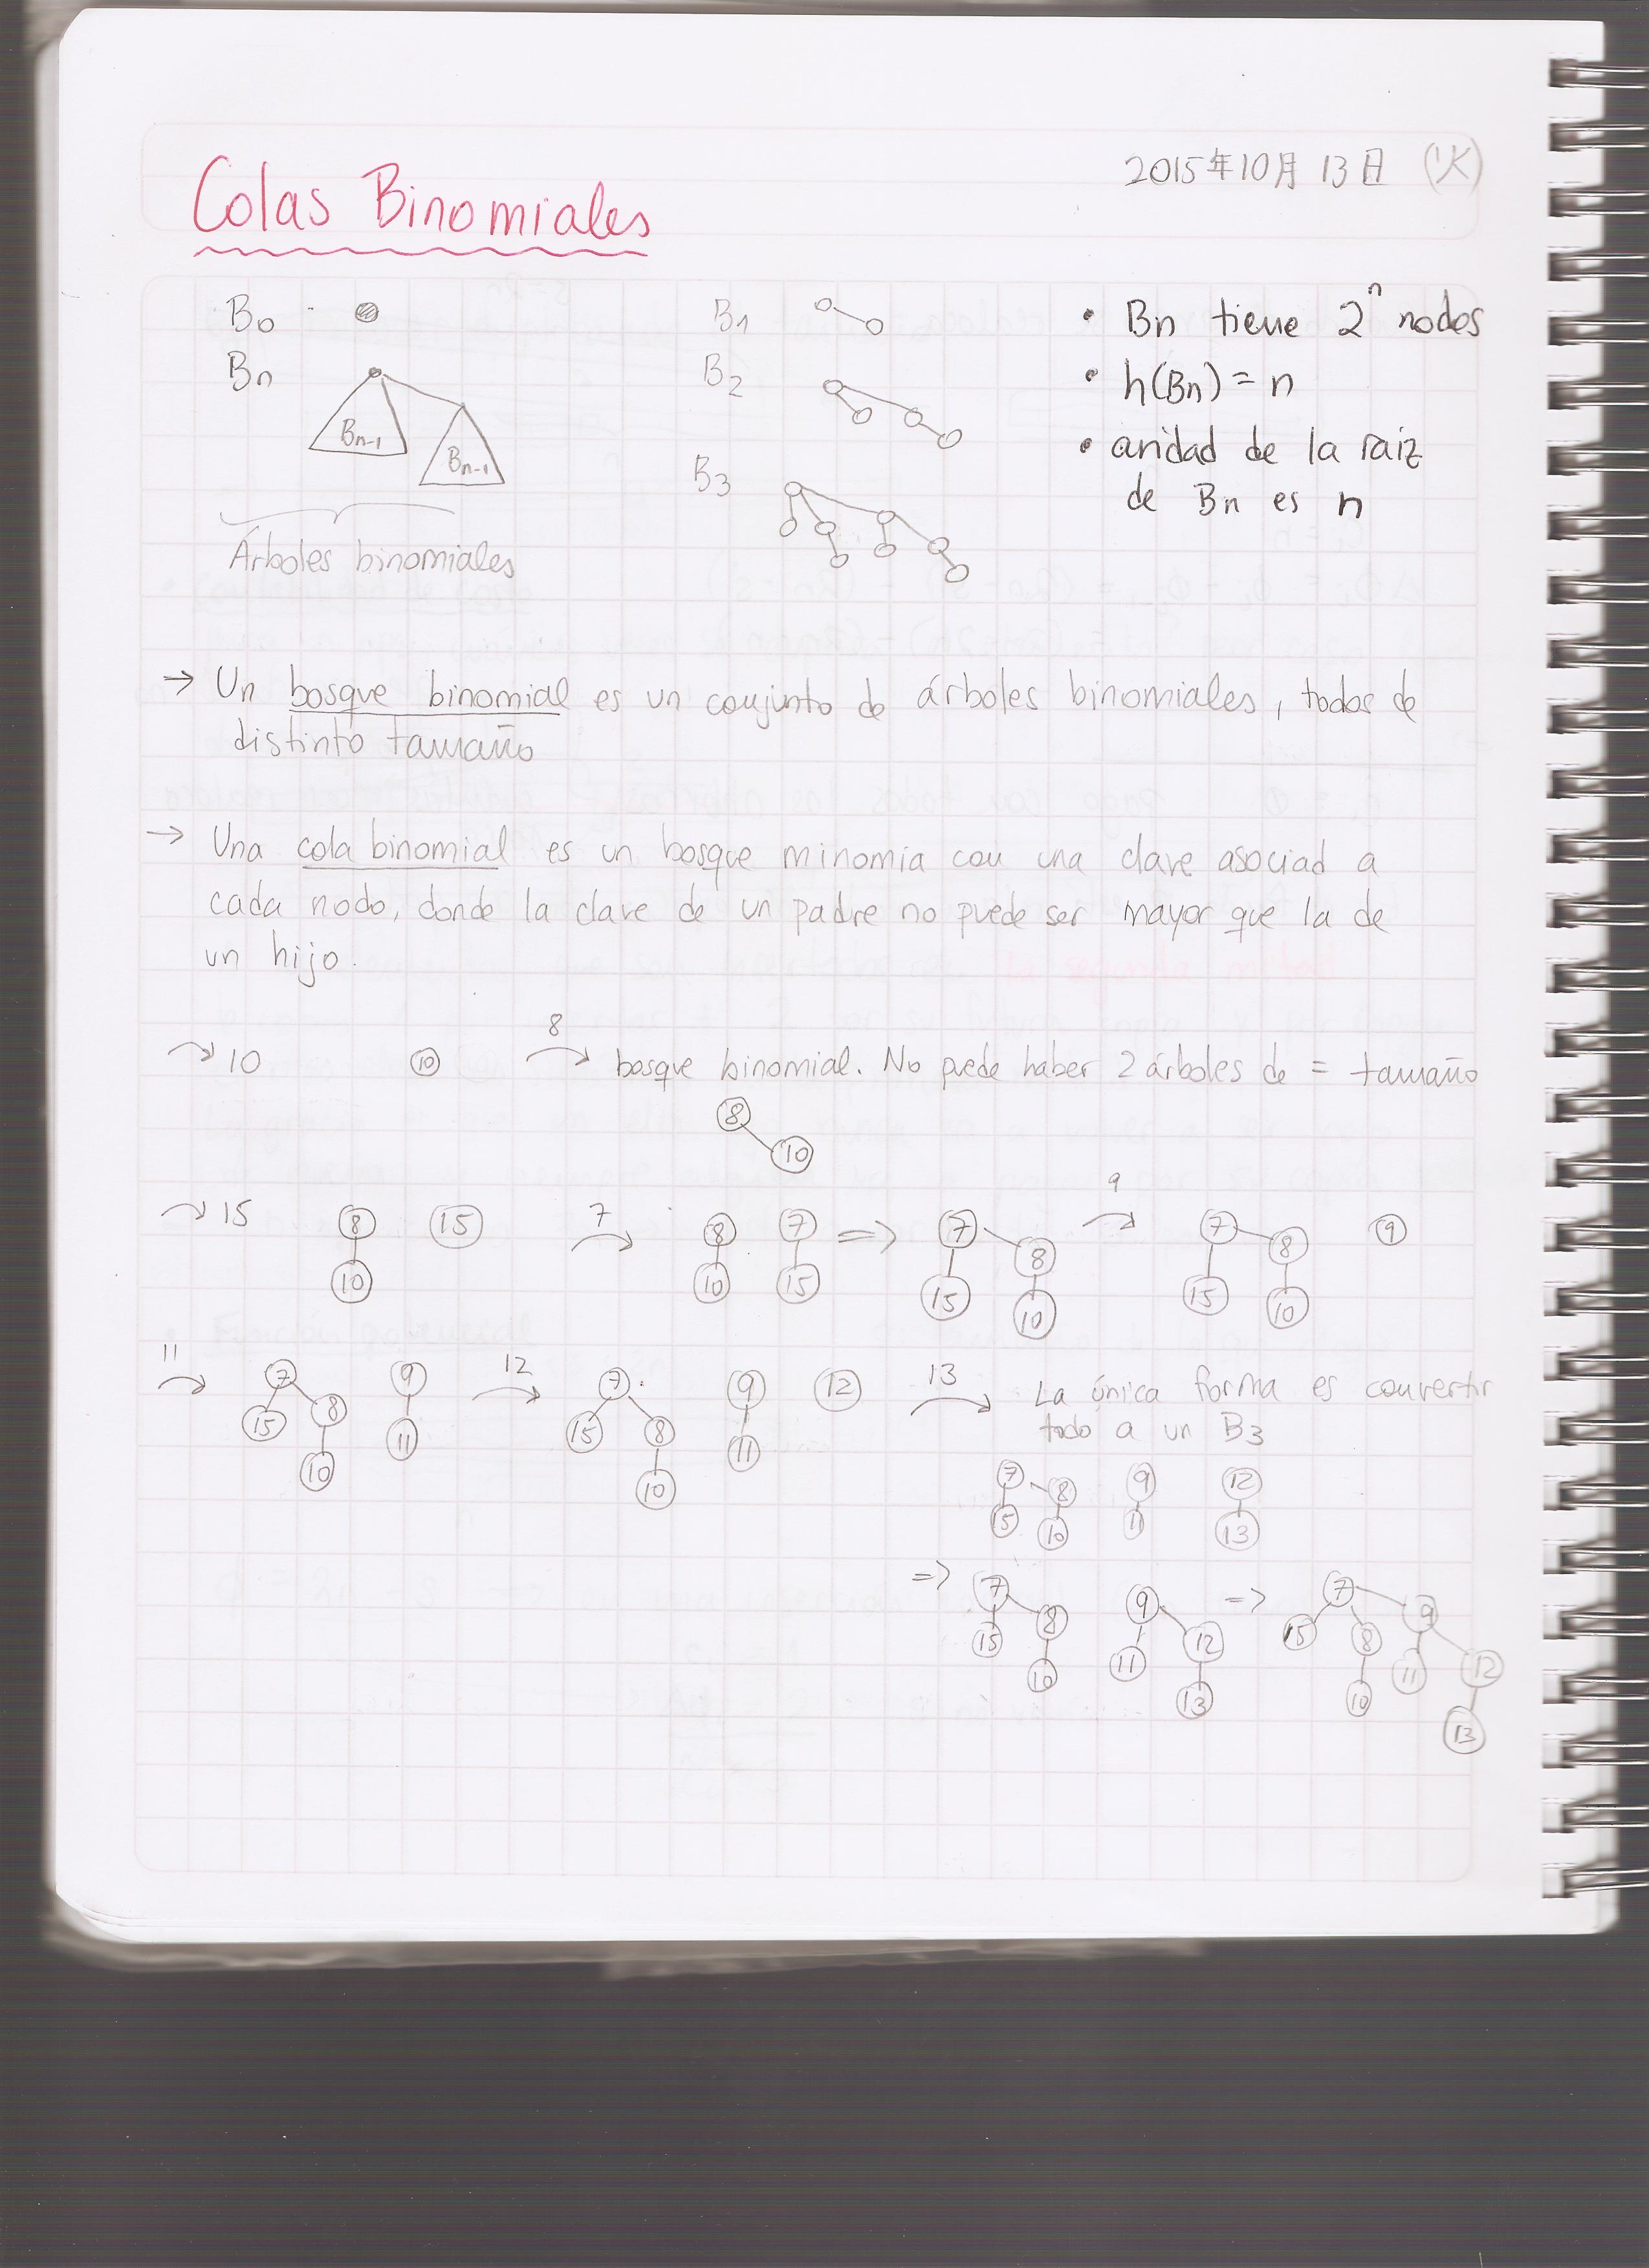 2015年10月13日 (火)
Colas Binomiales
B0
Bn
Bn-1
Bn-1
Árboles binomiales
B1
B2
B3
• Bn tiene 2^n nodos
• h(Bn) = n
• aridad de la raiz
de Bn es n
→ Un bosque binomial es un conjunto de árboles binomiales, todos de
distinto tamaño
→ Una cola binomial es un bosque minomia con una clave asociad a
cada nodo, donde la clave de un padre no puede ser mayor que la de
un hijo.
10 10 8 bosque binomial. No puede haber 2 árboles de = tamaño
8
10
15 8 15 7 8 7 => 7 9 7 9
8 8
10 10 15 15 10 15 10
11 7 9 12 7 9 12 13 La única forma es convertir
todo a un B3
15 8 11 15 8 11
10 10
7 8 9 12
15 10 11 13
=> 7 9 => 7
15 8 11 12 15 8 9
10 13 10 11 12
13